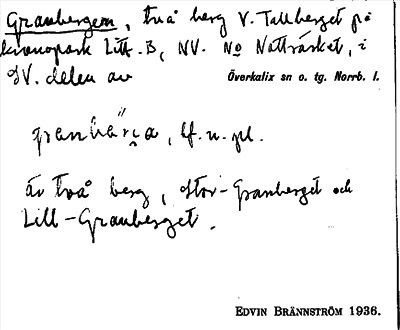 Granbergen, två berg V. Tallberget på
kronopark Litt. B, NV. No Natträsket, i
SV. delen av Överkalix sn o. tg. Norrb. l.
bf. n. pl.
är två berg, Stor-Granberget och
Lill-Granberget.
EDVIN BRÄNNSTRÖM 1936.